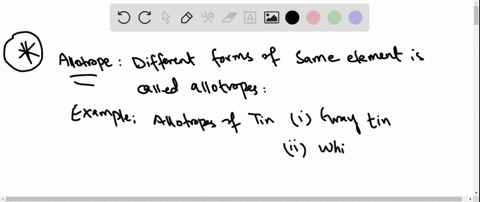 * Allotrope: Different forms of Same element is
called allotropes:
Example: Allotropes of Tin (i) Gray tin
(ii) Whi